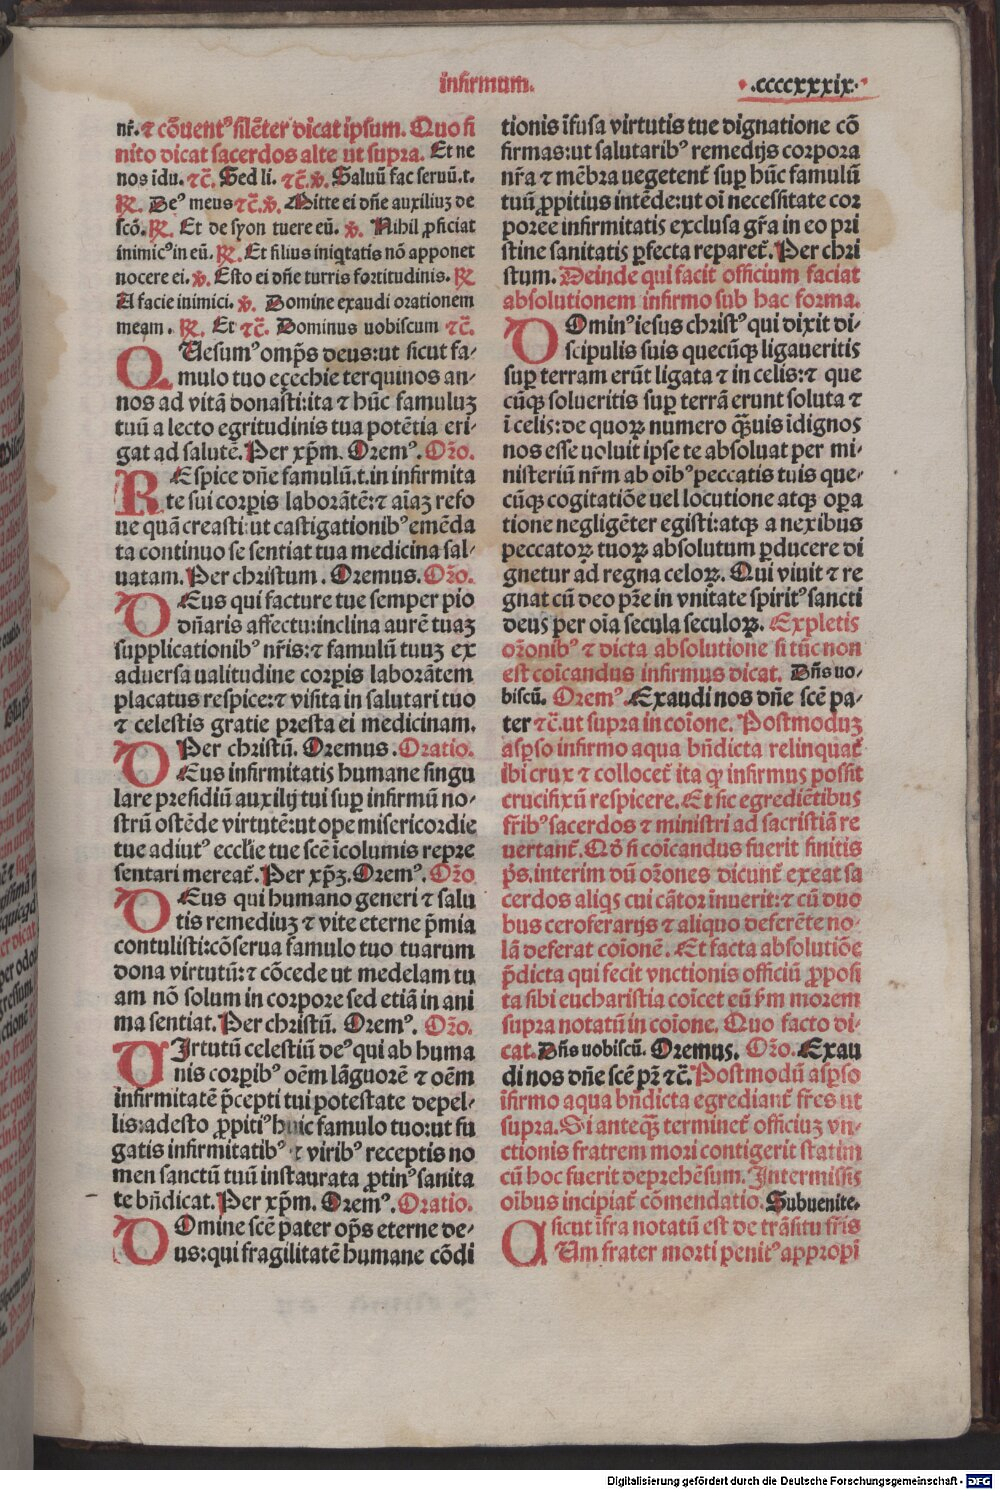 infirmum.
.ccccxxxix.
nr̄. ⁊ cōuentꝰ silēter dicat ipsum. Quo fi
nito dicat sacerdos alte ut supra. Et ne
nos īdu. ⁊c̄. Sed li. ⁊c̄. ℣. Saluū fac seruū.t.
℟. Deꝰ meus ⁊c̄. ℣. Mitte ei dn̄e auxiliuꝫ de
sc̄o. ℟. Et de syon tuere eū. ℣. Nihil ꝓficiat
inimicꝰ in eū. ℟. Et filius iniqtatis nō apponet
nocere ei. ℣. Esto ei dn̄e turris fortitudinis. ℟
A facie inimici. ℣. Domine exaudi orationem
meam. ℟. Et ⁊c̄. Dominus uobiscum ⁊c̄.
QUesumꝰ omp̄s deus: ut sicut fa-
mulo tuo eçechie terquinos an-
nos ad vitā donasti: ita ⁊ hūc famuluꝫ
tuū a lecto egritudinis tua potētia eri-
gat ad salutē. Per xp̄m. Oremꝰ. Or̄o.
REspice dn̄e famulū.t. in infirmita
te sui corꝑis laborātē: ⁊ aīaꝫ refo
ue quā creasti: ut castigationibꝰ emēda
ta continuo se sentiat tua medicina sal-
uatam. Per christum. Oremus. Or̄o.
DEus qui facture tue semper pio
dn̄aris affectu: inclina aurē tuaꝫ
supplicationibꝰ nr̄is: ⁊ famulū tuuꝫ ex
aduersa ualitudine corꝑis laborātem
placatus respice: ⁊ visita in salutari tuo
⁊ celestis gratie presta ei medicinam.
Per christū. Oremus. Oratio.
DEus infirmitatis humane singu
lare presidiū auxilij tui suꝑ infirmū no-
strū ostēde virtutē: ut ope misericordie
tue adiutꝰ eccl̄ie tue sc̄e īcolumis repre
sentari mereat̄. Per xp̄ꝫ. Oremꝰ. Or̄o
DEus qui humano generi ⁊ salu
tis remediuꝫ ⁊ vite eterne p̄mia
contulisti: cōserua famulo tuo tuarum
dona virtutū: ⁊ cōcede ut medelam tu
am nō solum in corpore sed etiā in ani
ma sentiat. Per christū. Oremꝰ. Or̄o.
UIrtutū celestiū deꝰ qui ab huma
nis corꝑibꝰ oēm lāguorē ⁊ oēm
infirmitatē p̄cepti tui potestate depel-
lis: adesto ꝓpitiꝰ huic famulo tuo: ut fu
gatis infirmitatibꝰ ⁊ viribꝰ receptis no
men sanctū tuū instaurata ꝓtinꝰ sanita
te bn̄dicat. Per xp̄m. Oremꝰ. Oratio.
DOmine sc̄e pater op̄s eterne de-
us: qui fragilitatē humane cōdi
tionis īfusa virtutis tue dignatione cō
firmas: ut salutaribꝰ remedijs corpora
nr̄a ⁊ mēbra uegetent̄ suꝑ hūc famulū
tuū ꝓpitius intēde: ut oī necessitate cor
poree infirmitatis exclusa gr̄a in eo pri
stine sanitatis ꝑfecta reparet̄. Per chri
stum. Deinde qui facit officium faciat
absolutionem infirmo sub hac forma.
DOminꝰ iesus christꝰ qui dixit di-
scipulis suis quecūqꝫ ligaueritis
suꝑ terram erūt ligata ⁊ in celis: ⁊ que
cūqꝫ solueritis suꝑ terrā erunt soluta ⁊
ī celis: de quoꝝ numero q̄ꝫuis īdignos
nos esse uoluit ipse te absoluat per mi-
nisteriū nr̄m ab oībꝰ peccatis tuis que-
cūqꝫ cogitatiōe uel locutione atqꝫ oꝑa
tione negligēter egisti: atqꝫ a nexibus
peccatoꝝ tuoꝝ absolutum ꝑducere di
gnetur ad regna celoꝝ. Qui viuit ⁊ re
gnat cū deo pr̄e in vnitate spiritꝰ sancti
deus per oīa secula seculoꝝ. Expletis
or̄onibꝰ ⁊ dicta absolutione si tūc non
est coīcandus infirmus dicat. Dn̄s uo-
biscū. Oremꝰ. Exaudi nos dn̄e sc̄e pa-
ter ⁊c̄. ut supra in coīone. Postmoduꝫ
asꝑso infirmo aqua bn̄dicta relinquat̄
ibi crux ⁊ collocet̄ ita ꝙ infirmus possit
crucifixū respicere. Et sic egrediētibus
fr̄ibꝰ sacerdos ⁊ ministri ad sacristiā re
uertant̄. Qō si coīcandus fuerit finitis
p̄s. interim dū or̄ones dicunt̄ exeat sa
cerdos aliqs cui cātor īnuerit: ⁊ cū duo
bus ceroferarijs ⁊ aliquo deferēte no-
lā deferat coīonē. Et facta absolutiōe
p̄dicta qui fecit vnctionis officiū ꝓposi
ta sibi eucharistia coīcet eū ꝟm morem
supra notatū in coīone. Quo facto di-
cat. Dn̄s uobiscū. Oremus. Or̄o. Exau
di nos dn̄e sc̄e pr̄ ⁊c̄. Postmodū asꝑso
īfirmo aqua bn̄dicta egrediant̄ fr̄es ut
supra. Si anteq̄ꝫ terminet̄ officiuꝫ vn-
ctionis fratrem mori contigerit statim
cū hoc fuerit deprehēsum. Intermissis
oībus incipiat̄ cōmendatio. Subuenite.
sicut īfra notatū est de trāsitu fr̄is
CUm frater morti penitꝰ appropī
Digitalisierung gefördert durch die Deutsche Forschungsgemeinschaft - DFG